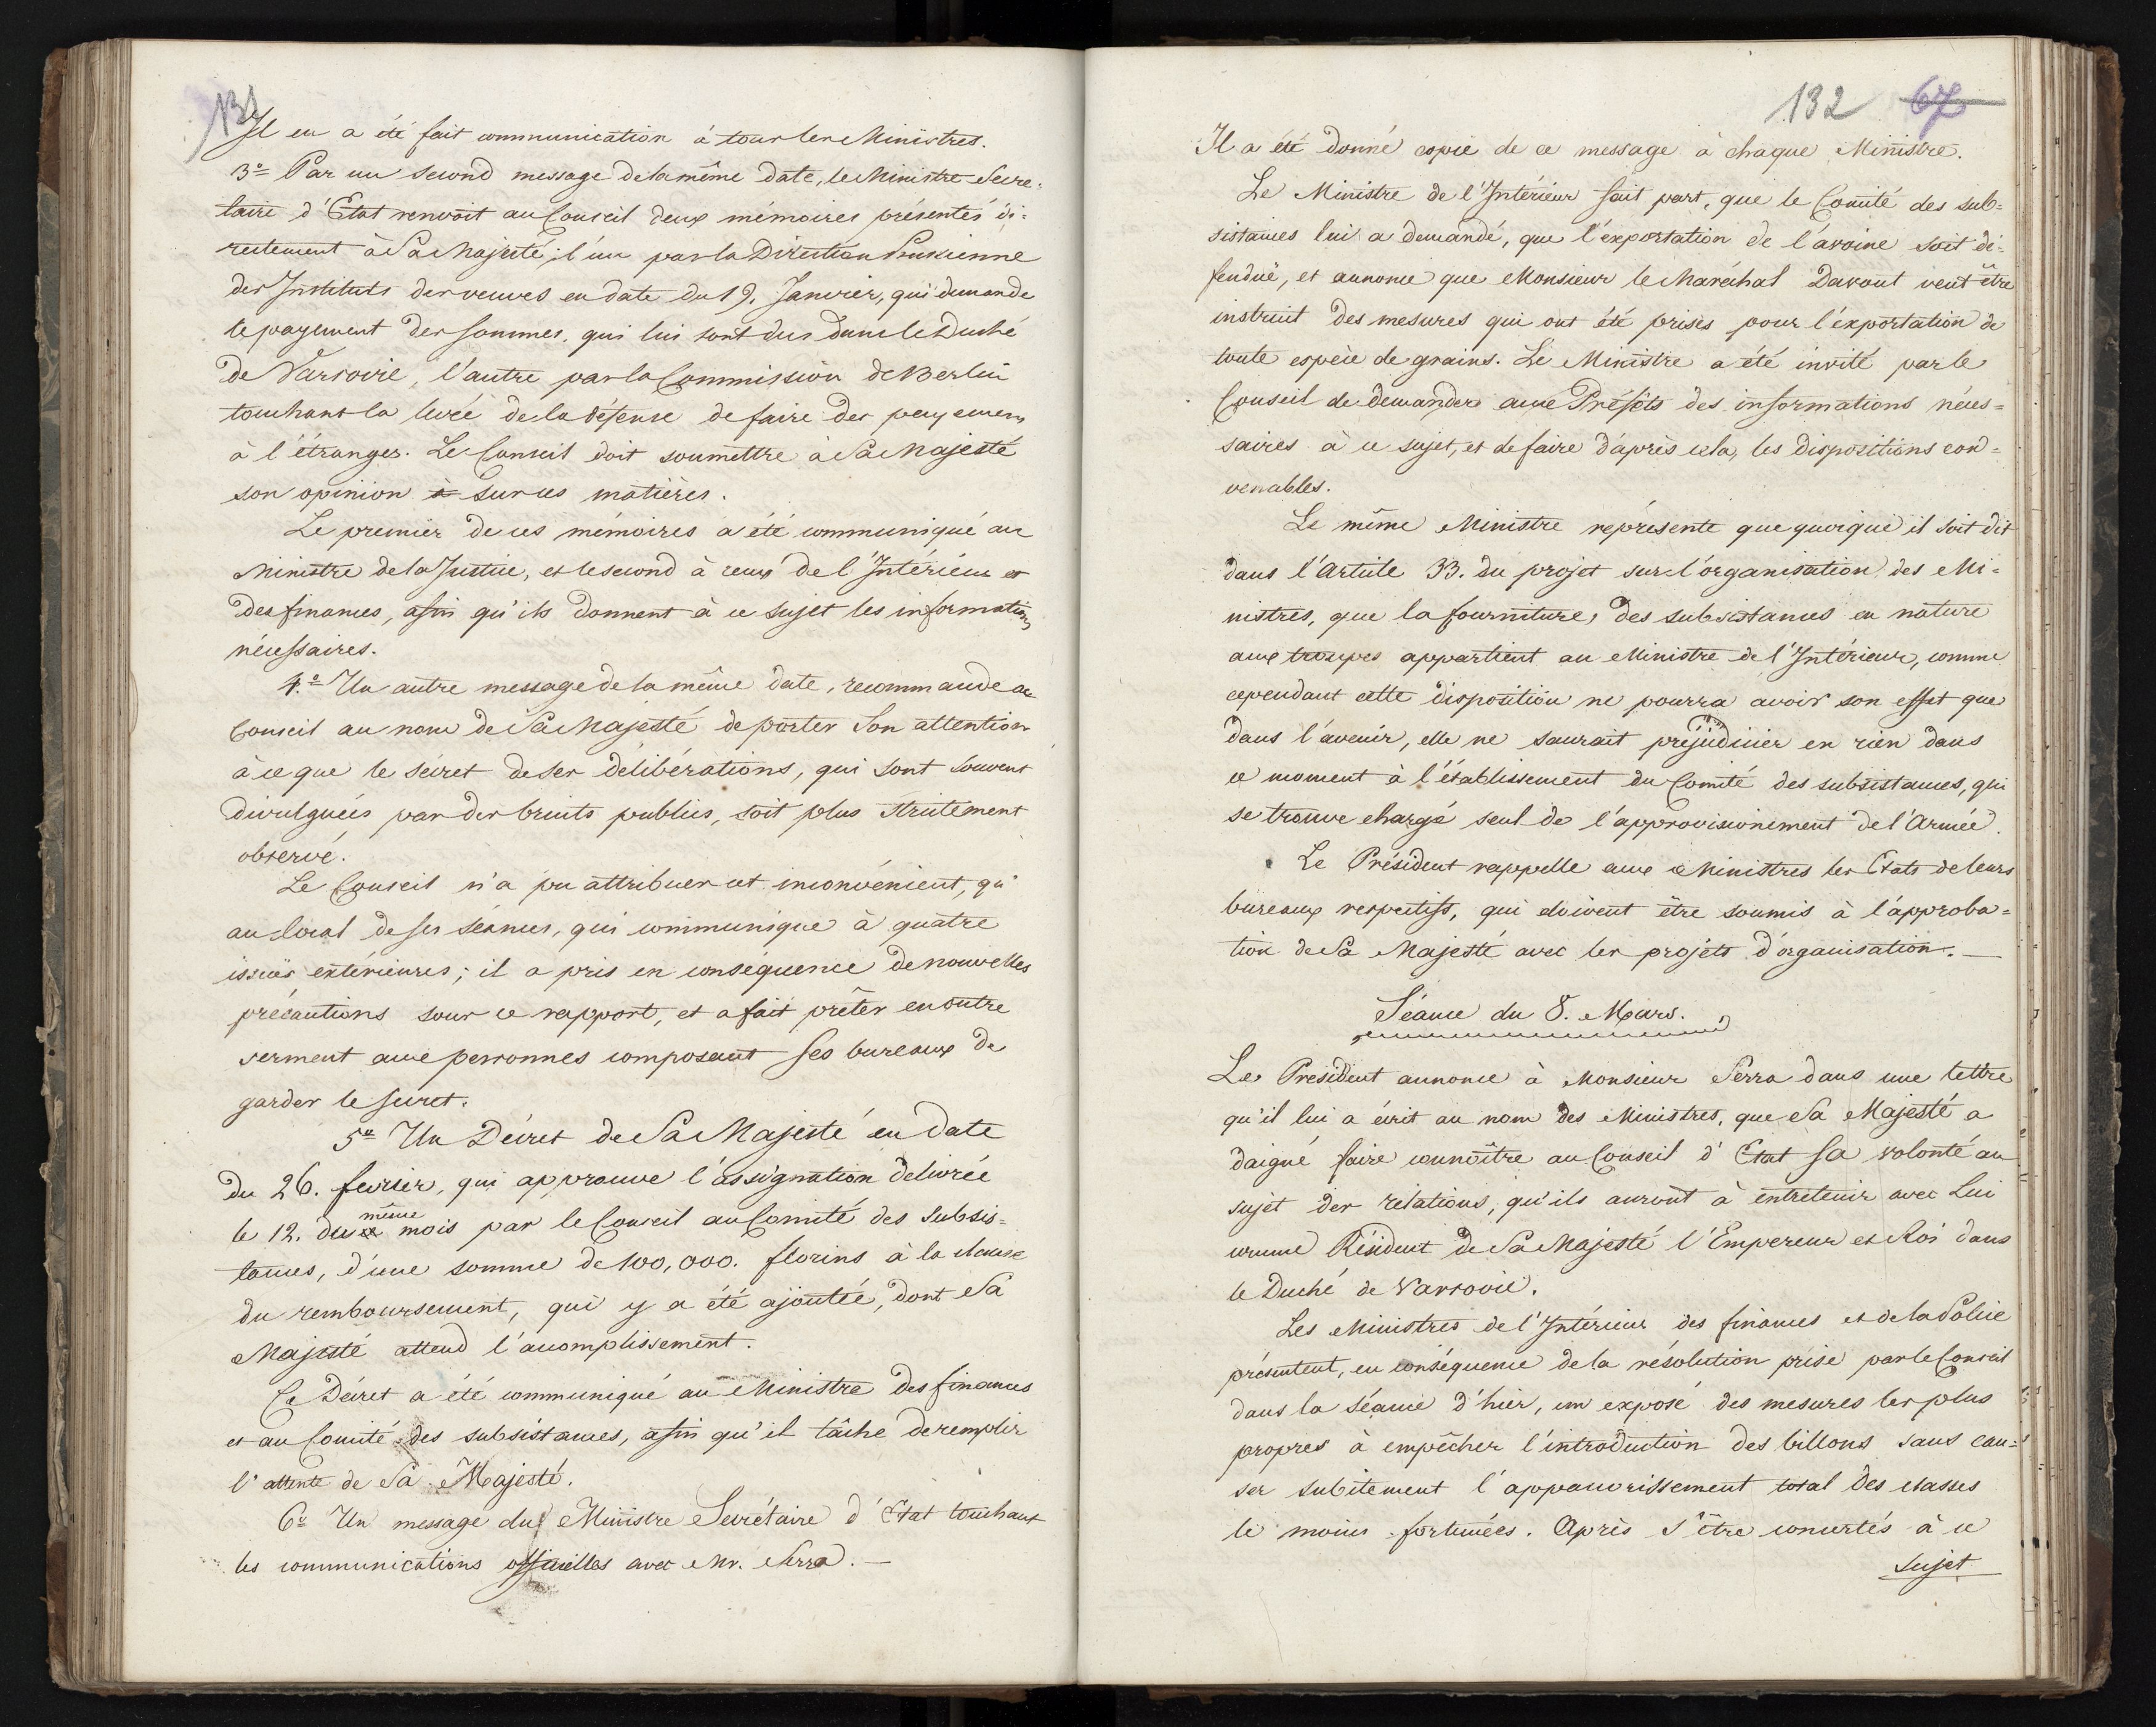 131
Il en a été fait communication à tous les Ministres.
3º Par un second message de la même date, le Ministre Secre-
taire d'Etat renvoit au Conseil deux mémoires présentés di-
rectement à Sa Majesté; l'un par la Direction Prussienne
des Instituts des veuves en date du 19. Janvier, qui demande
le payement des sommes, qui lui sont dus dans le Duché
de Varsovie, l'autre par la Commission de Berlin
touchant la levée de la défense de faire des payemens
à l'étranger. Le Conseil doit soumettre à Sa Majesté
son opinion à sur ces matières.
Le premier de ces mémoires a été communiqué au
Ministre de la Justice, et le second à ceux de l'Intérieur et
des finances, afin qu'ils donnent à ce sujet les informations
nécessaires.
4.º Un autre message de la même date, recommande au
Conseil au nom de Sa Majesté de porter Son attention
à ce que le sécret de ses délibérations, qui sont souvent
divulguées par des bruits publics, soit plus strictement
observé.
Le Conseil n'a pu attribuer cet inconvénient, qu'
au local de ses séances, qui communique à quatre
issües extérieures; il a pris en conséquence de nouvelles
précautions sous ce rapport, et a fait prêter en outre
serment aux personnes composant ses bureaux de
garder le secret.
5º Un Décret de Sa Majesté en date
du 26. fevrier, qui approuve l'assignation delivrée
le 12. du même mois par le Conseil au Comité des Subsis-
tances, d'une somme de 100,000. florins à la clause
du remboursement, qui y a été ajoutée, dont Sa
Majesté attend l'accomplissement.
Ce Décret a été communiqué au Ministre des finances
et au Comité des subsistances, afin qu'il tâche de remplir
l'attente de Sa Majesté.
6º Un message du Ministre Secrétaire d'Etat touchant
les communications officielles avec Mr. Serra. —
132 67
Il a été donné copie de ce message à chaque Ministre.
Le Ministre de l'Intérieur fait part, que le Comité des sub-
sistances lui a demandé, que l'exportation de l'avoine soit dé-
fenduë, et annonce que Monsieur le Maréchal Davout veut être
instruit des mesures qui ont été prises pour l'éxportation de
toute espèce de grains. Le Ministre a été invité par le
Conseil de demander aux Préfèts des informations néces-
saires à ce sujet, et de faire d'après cela, les dispositions con-
venables.
Le même Ministre représente que quoique il soit dit
dans l'Article 33. du projet sur l'organisation des Mi-
nistres, que la fourniture, des subsistances en nature
aux troupes appartient au Ministre de l'Intérieur, comme
cependant cette disposition ne pourra avoir son effet que
dans l'avenir, elle ne saurait préjüdicier en rien dans
ce moment à l'établissement du Comité des subsistances, qui
se trouve chargé seul de l'approvisionement de l'Armée.
Le Président rappelle aux Ministres les Etats de leurs
bureaux respectifs, qui doivent être soumis à l'approba-
tion de Sa Majesté avec les projets d'organisation. —
Séance du 8. Mars.
Le President annonce à Monsieur Serra dans une lettre
qu'il lui a écrit au nom des Ministres, que Sa Majesté a
daigné faire connoître au Conseil d'Etat Sa volonté au
sujet des relations, qu'ils auront à entretenir avec Lui
comme Résident de Sa Majesté l'Empereur et Roi dans
le Duché de Varsovie.
Les Ministres de l'Intérieur des finances et de la Police
présentent, en conséquence de la résolution prise par le Conseil
dans la séance d'hier, un exposé des mesures les plus
propres à empêcher l'introduction des billons sans cau-
ser subitement l'appauvrissement total des classes
le moins fortunées. Après s'être concertés à ce
sujet